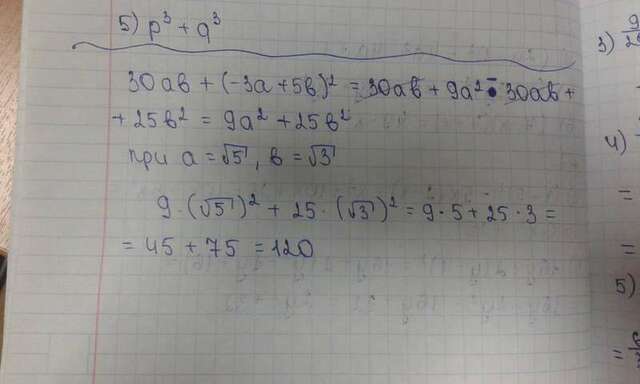 5) p³ + q³
30ab + (-3a + 5b)² = 30ab + 9a² - 30ab +
+ 25b² = 9a² + 25b²
при a = √5, b = √3
9 · (√5)² + 25 · (√3)² = 9 · 5 + 25 · 3 =
= 45 + 75 = 120
3)
4)
=
=
5)
=